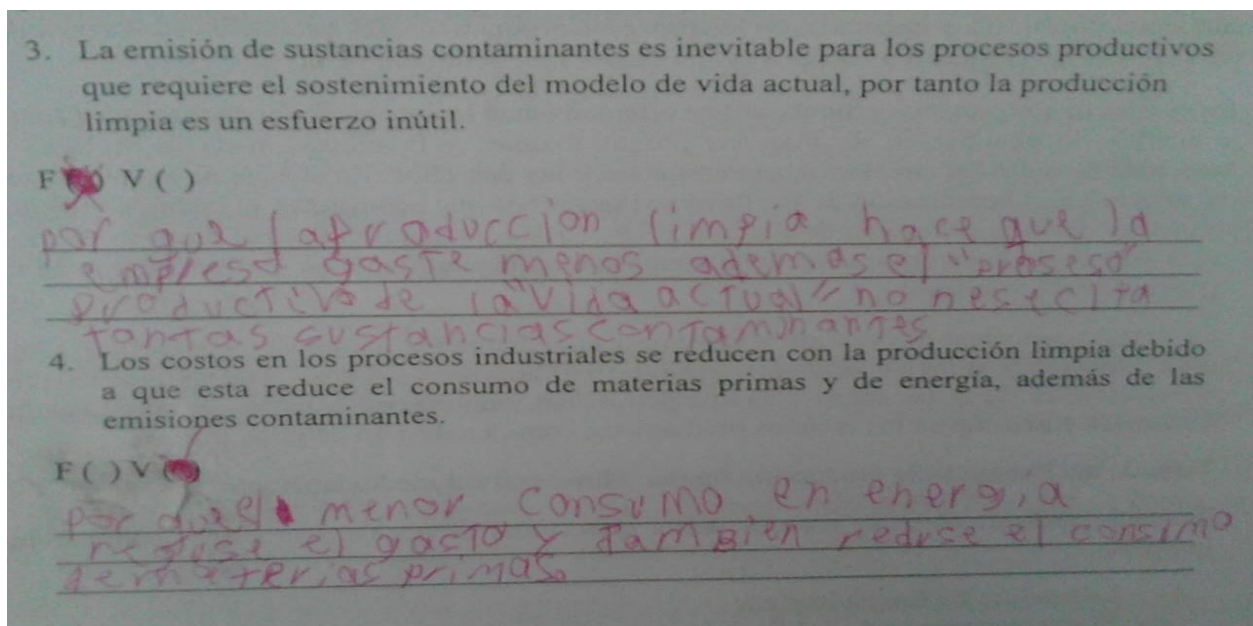 3. La emisión de sustancias contaminantes es inevitable para los procesos productivos
que requiere el sostenimiento del modelo de vida actual, por tanto la producción
limpia es un esfuerzo inútil.
F ( ) V ( )
por que la produccion limpia hace que la
empresa gaste menos ademas el "proseso
productivo de la "vida actual" no nesecita
tantas sustancias contaminantes
4. Los costos en los procesos industriales se reducen con la producción limpia debido
a que esta reduce el consumo de materias primas y de energía, además de las
emisiones contaminantes.
F ( ) V ( )
por que menor consumo en energia
reduse el gasto y tambien reduse el consumo
de materias primas.